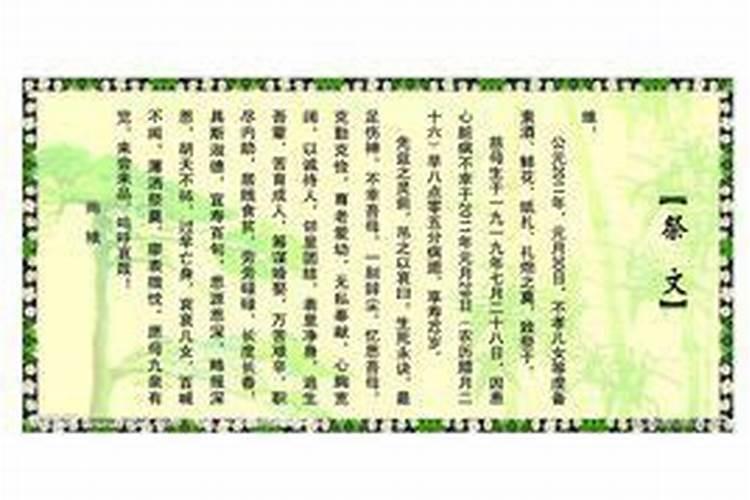 【祭文】
维，
公元2011年，元月30日，不孝儿女等虔备
素酒，鲜花，纸札，礼炮之奠，致祭于，
慈母生于一九一九年七月二十八日，因患
心脏病不幸于2011年元月29日（农历腊月二
十六）早八点零五分病逝，享寿
先慈之灵前，吊之以哀曰。生死永诀，最
足伤神，不幸吾母，一别归尘，忆思吾母，
克勤克俭，尊老爱幼，无私奉献，心胸宽
阔，以诚待人，邻里团结，
吾辈，苦育成人，万苦艰辛，职
尽内助，居贱食贫，劳劳碌碌，长度长春，
具斯淑德，宜寿百旬，恩深，
恩，胡天不祐，亡身，哀哀儿女，百喊
不闻，薄酒祭奠，聊表微忱，愿母九泉有
觉，来尝来品，呜呼哀哉！
尚飨